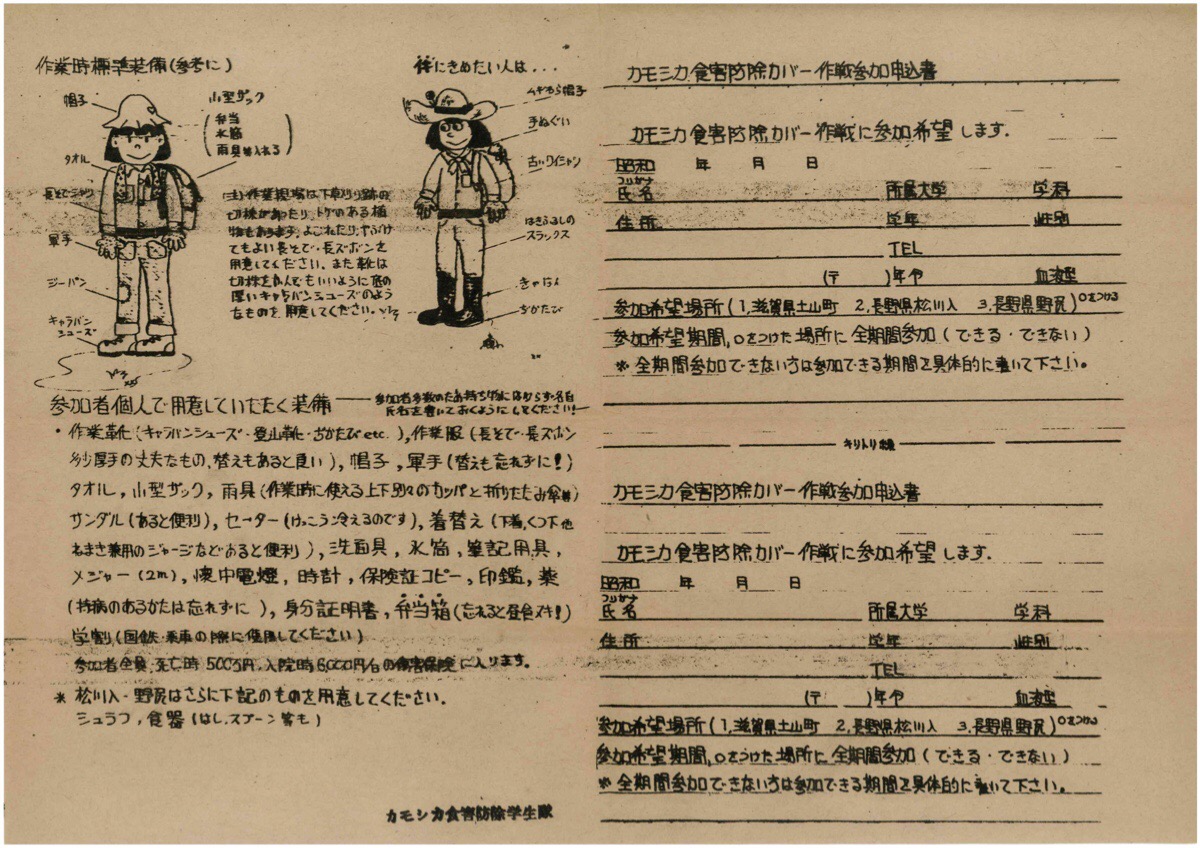 作業時標準装備(参考に)
帽子
小型ザック
弁当
水筒
雨具等入れる
タオル
長そでシャツ
軍手
ジーパン
キャラバン
シューズ
粋にきめたい人は...
ムギわら帽子
手ぬぐい
古いワイシャツ
はきふるしの
スラックス
きゃはん
ぢかたび
注)作業現場は下草刈り跡の
切株があったり、トゲのある植
物もあります。よごれたり、やぶけ
てもよい長そで・長ズボンを
用意してください。また靴は
切株をふんでもいいように底の
厚いキャラバンシューズのよう
なものを用意してください。
参加者個人で用意していただく装備
参加者多数のため持ち物にはかならず各自
氏名を書いておくようにしてください!
・作業靴(キャラバンシューズ・登山靴・ぢかたびetc.),作業服(長そで・長ズボン
多少厚手の丈夫なもの、替えもあると良い),帽子,軍手(替えも忘れずに!)
タオル,小型ザック,雨具(作業時に使える上下別々のカッパと折りたたみ傘等)
サンダル(あると便利),セーター(けっこう冷えるのです),着替え(下着、くつ下他
ねまき兼用のジャージなどあると便利),洗面具,水筒,筆記用具,
メジャー(2m),懐中電燈,時計,保険証コピー,印鑑,薬
(持病のあるかたは忘れずに),身分証明書,弁当箱(忘れると昼食ヌキ!)
学割(国鉄・乗車の際に使用してください)
参加者全員、死亡時500万円、入院時6000円/日の傷害保険に入ります。
* 松川入・野尻はさらに下記のものを用意してください.
シュラフ,食器(はし、スプーン等も)
カモシカ食害防除学生隊
カモシカ食害防除カバー作戦参加申込書
カモシカ食害防除カバー作戦に参加希望します.
昭和 年 月 日
フリガナ
氏名 所属大学 学科
住所 学年 性別
TEL
(〒 ) 年令 血液型
参加希望場所(1,滋賀県土山町 2,長野県松川入 3,長野県野尻)○をつける
参加希望期間,○をつけた場所に全期間参加(できる・できない)
※全期間参加できない方は参加できる期間を具体的に書いて下さい。
キリトリ線
カモシカ食害防除カバー作戦参加申込書
カモシカ食害防除カバー作戦に参加希望します.
昭和 年 月 日
フリガナ
氏名 所属大学 学科
住所 学年 性別
TEL
(〒 ) 年令 血液型
参加希望場所(1,滋賀県土山町 2,長野県松川入 3,長野県野尻)○をつける
参加希望期間,○をつけた場所に全期間参加(できる・できない)
※全期間参加できない方は参加できる期間を具体的に書いて下さい。